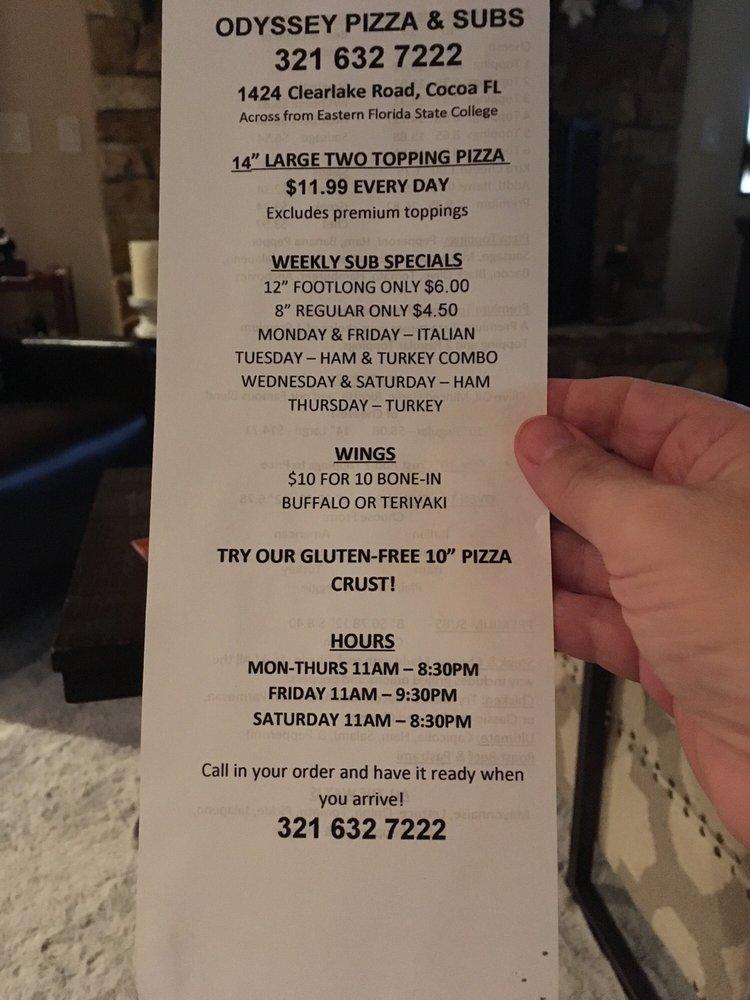 ODYSSEY PIZZA & SUBS
321 632 7222
1424 Clearlake Road, Cocoa FL
Across from Eastern Florida State College
14” LARGE TWO TOPPING PIZZA
$11.99 EVERY DAY
Excludes premium toppings
WEEKLY SUB SPECIALS
12” FOOTLONG ONLY $6.00
8” REGULAR ONLY $4.50
MONDAY & FRIDAY – ITALIAN
TUESDAY – HAM & TURKEY COMBO
WEDNESDAY & SATURDAY – HAM
THURSDAY – TURKEY
WINGS
$10 FOR 10 BONE-IN
BUFFALO OR TERIYAKI
TRY OUR GLUTEN-FREE 10” PIZZA
CRUST!
HOURS
MON-THURS 11AM – 8:30PM
FRIDAY 11AM – 9:30PM
SATURDAY 11AM – 8:30PM
Call in your order and have it ready when
you arrive!
321 632 7222